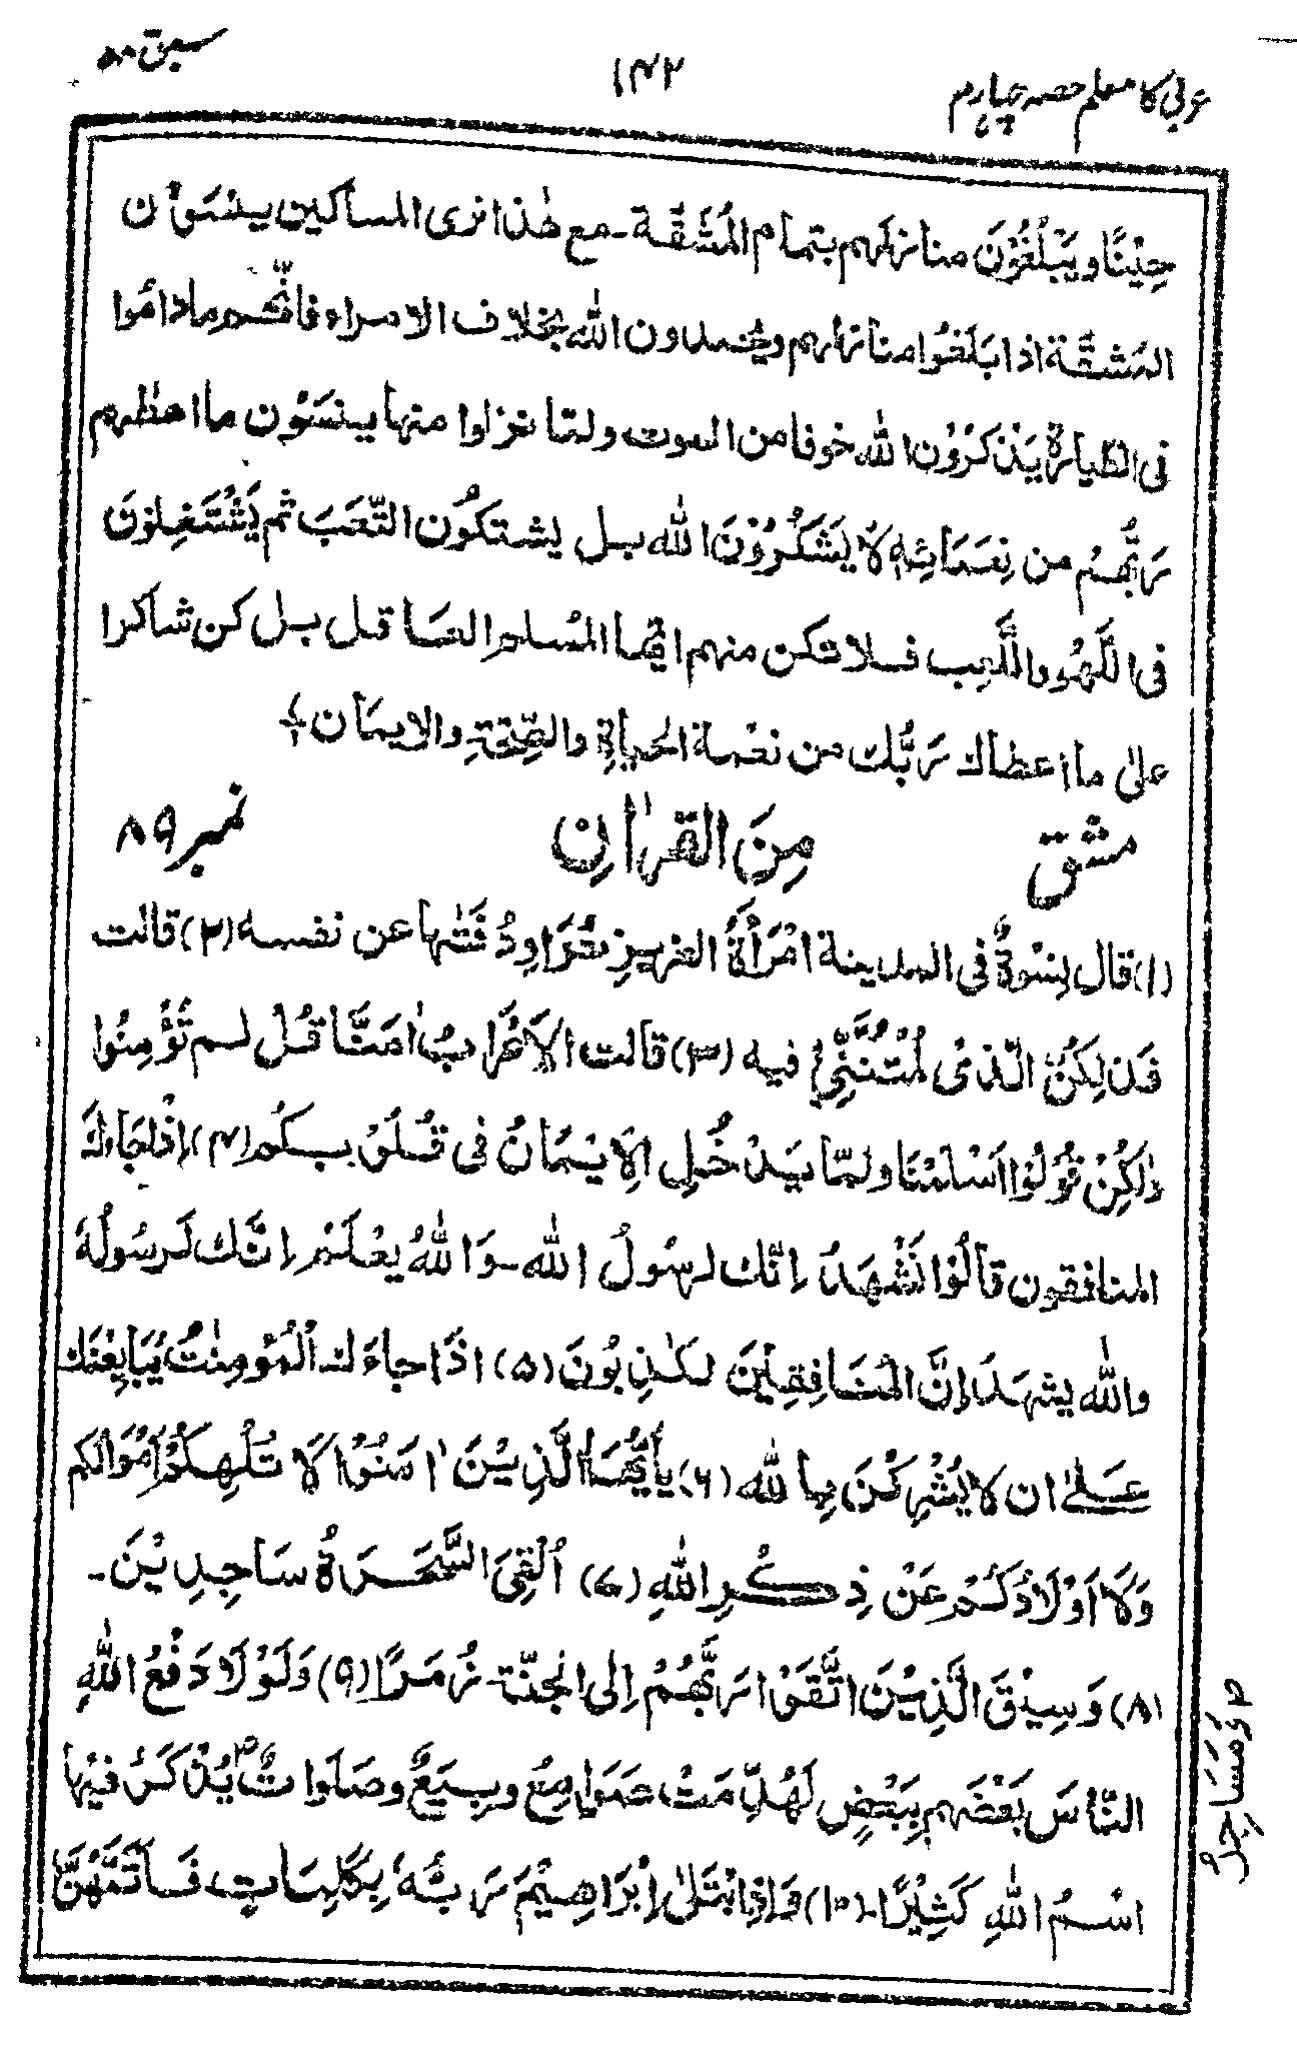 عربی کا معلم حصہ چہارم
۱۴۲
سبق ۵۸
حِيْنًا وَيَبْلُغُوْنَ منازلهم بتمام المُشَقَّة ـ مع هٰذا نرى المساكين ينسَوْن
المَشقَّة اذا بَلَغُوا منازلهم ويحمدون الله بخلاف الامراء فانّهم ماداموا
فى الطّيارةِ يَذْكَرُوْن الله خوفا من الموت ولمّا نزلوا منها ينسَوْن ما اعطٰهم
رَبُّهُمْ من نِعَمَائِهٖ لَا يَشْكُرُوْنَ الله بل يشتكُون التّعَبَ ثم يَشْتَغِلوْنَ
فى اللَّهْوِ واللَّعِب فلا تكن منهم ايّها المُسلم العاقل بل كن شاكرا
علىٰ ما اعطاك رَبُّك من نعْمة الحياةِ والصِّحّةِ والايمان ؛
مشق
مِنَ القراٰنِ
نمبر ۸۹
(۱) قال نِسْوةٌ فى المدينة امْرَأةُ العزيزِ تُرَاوِدُ فَتٰها عن نفسه (۲) قالت
فَذٰلِكُنّ الّذىْ لُمْتُنَّنِىْ فيه (۳) قالت الاَعْرَابُ اٰمَنَّا قُلْ لم تُؤْمِنُوا
ولٰكِنْ قُوْلُوْا اَسْلَمْنَا ولمّا يَدْخُلِ الِايْمَانُ فى قُلُوْبِكُم (۴) اِذَا جَاءَكَ
المنافقون قالُوْا نَشْهَدُ اِنّك لرسُولُ الله ـ وَاللهُ يعْلَمُ اِنَّك لَرسُولُهٗ
والله يشهَدُ اِنَّ المُنَافِقِيْنَ لكٰذِبُونَ (۵) اِذَا جاءَك الْمُؤمِنٰتُ يُبَايِعْنَك
عَلىٰ ان لا يُشْرِكْنَ بِا لله (۶) يٰاَيُّهَا الَّذِيْنَ اٰمَنُوْا لَا تُلْهِكُمْ اَمْوَالُكم
وَلَا اَوْلَادُكُمْ عَنْ ذِكْرِ اللهِ (۷) اُلْقِىَ السَّحَرَةُ سَاجِدِيْنَ ـ
(۸) وَسِيْقَ الَّذِيْنَ اتَّقَوْا رَبَّهُمْ اِلى الجنّة زُمَرًا (۹) وَلَوْلَا دَفْعُ اللهِ
النّاسَ بَعْضَهم بِبَعْضٍ لَهُدِّمَتْ صَوَامِعُ وبِيَعٌ وصَلَواتٌ يُذْكَرُ فيْها
وَمَسَاجِدُ
اسْمُ اللهِ كَثِيْرًا (۱۰) وَاِذِ ابْتَلىٰ اِبْرَاهِيْمَ رَبُّهٗ بِكَلِمَاتٍ فَاَتَمَّهُنَّ